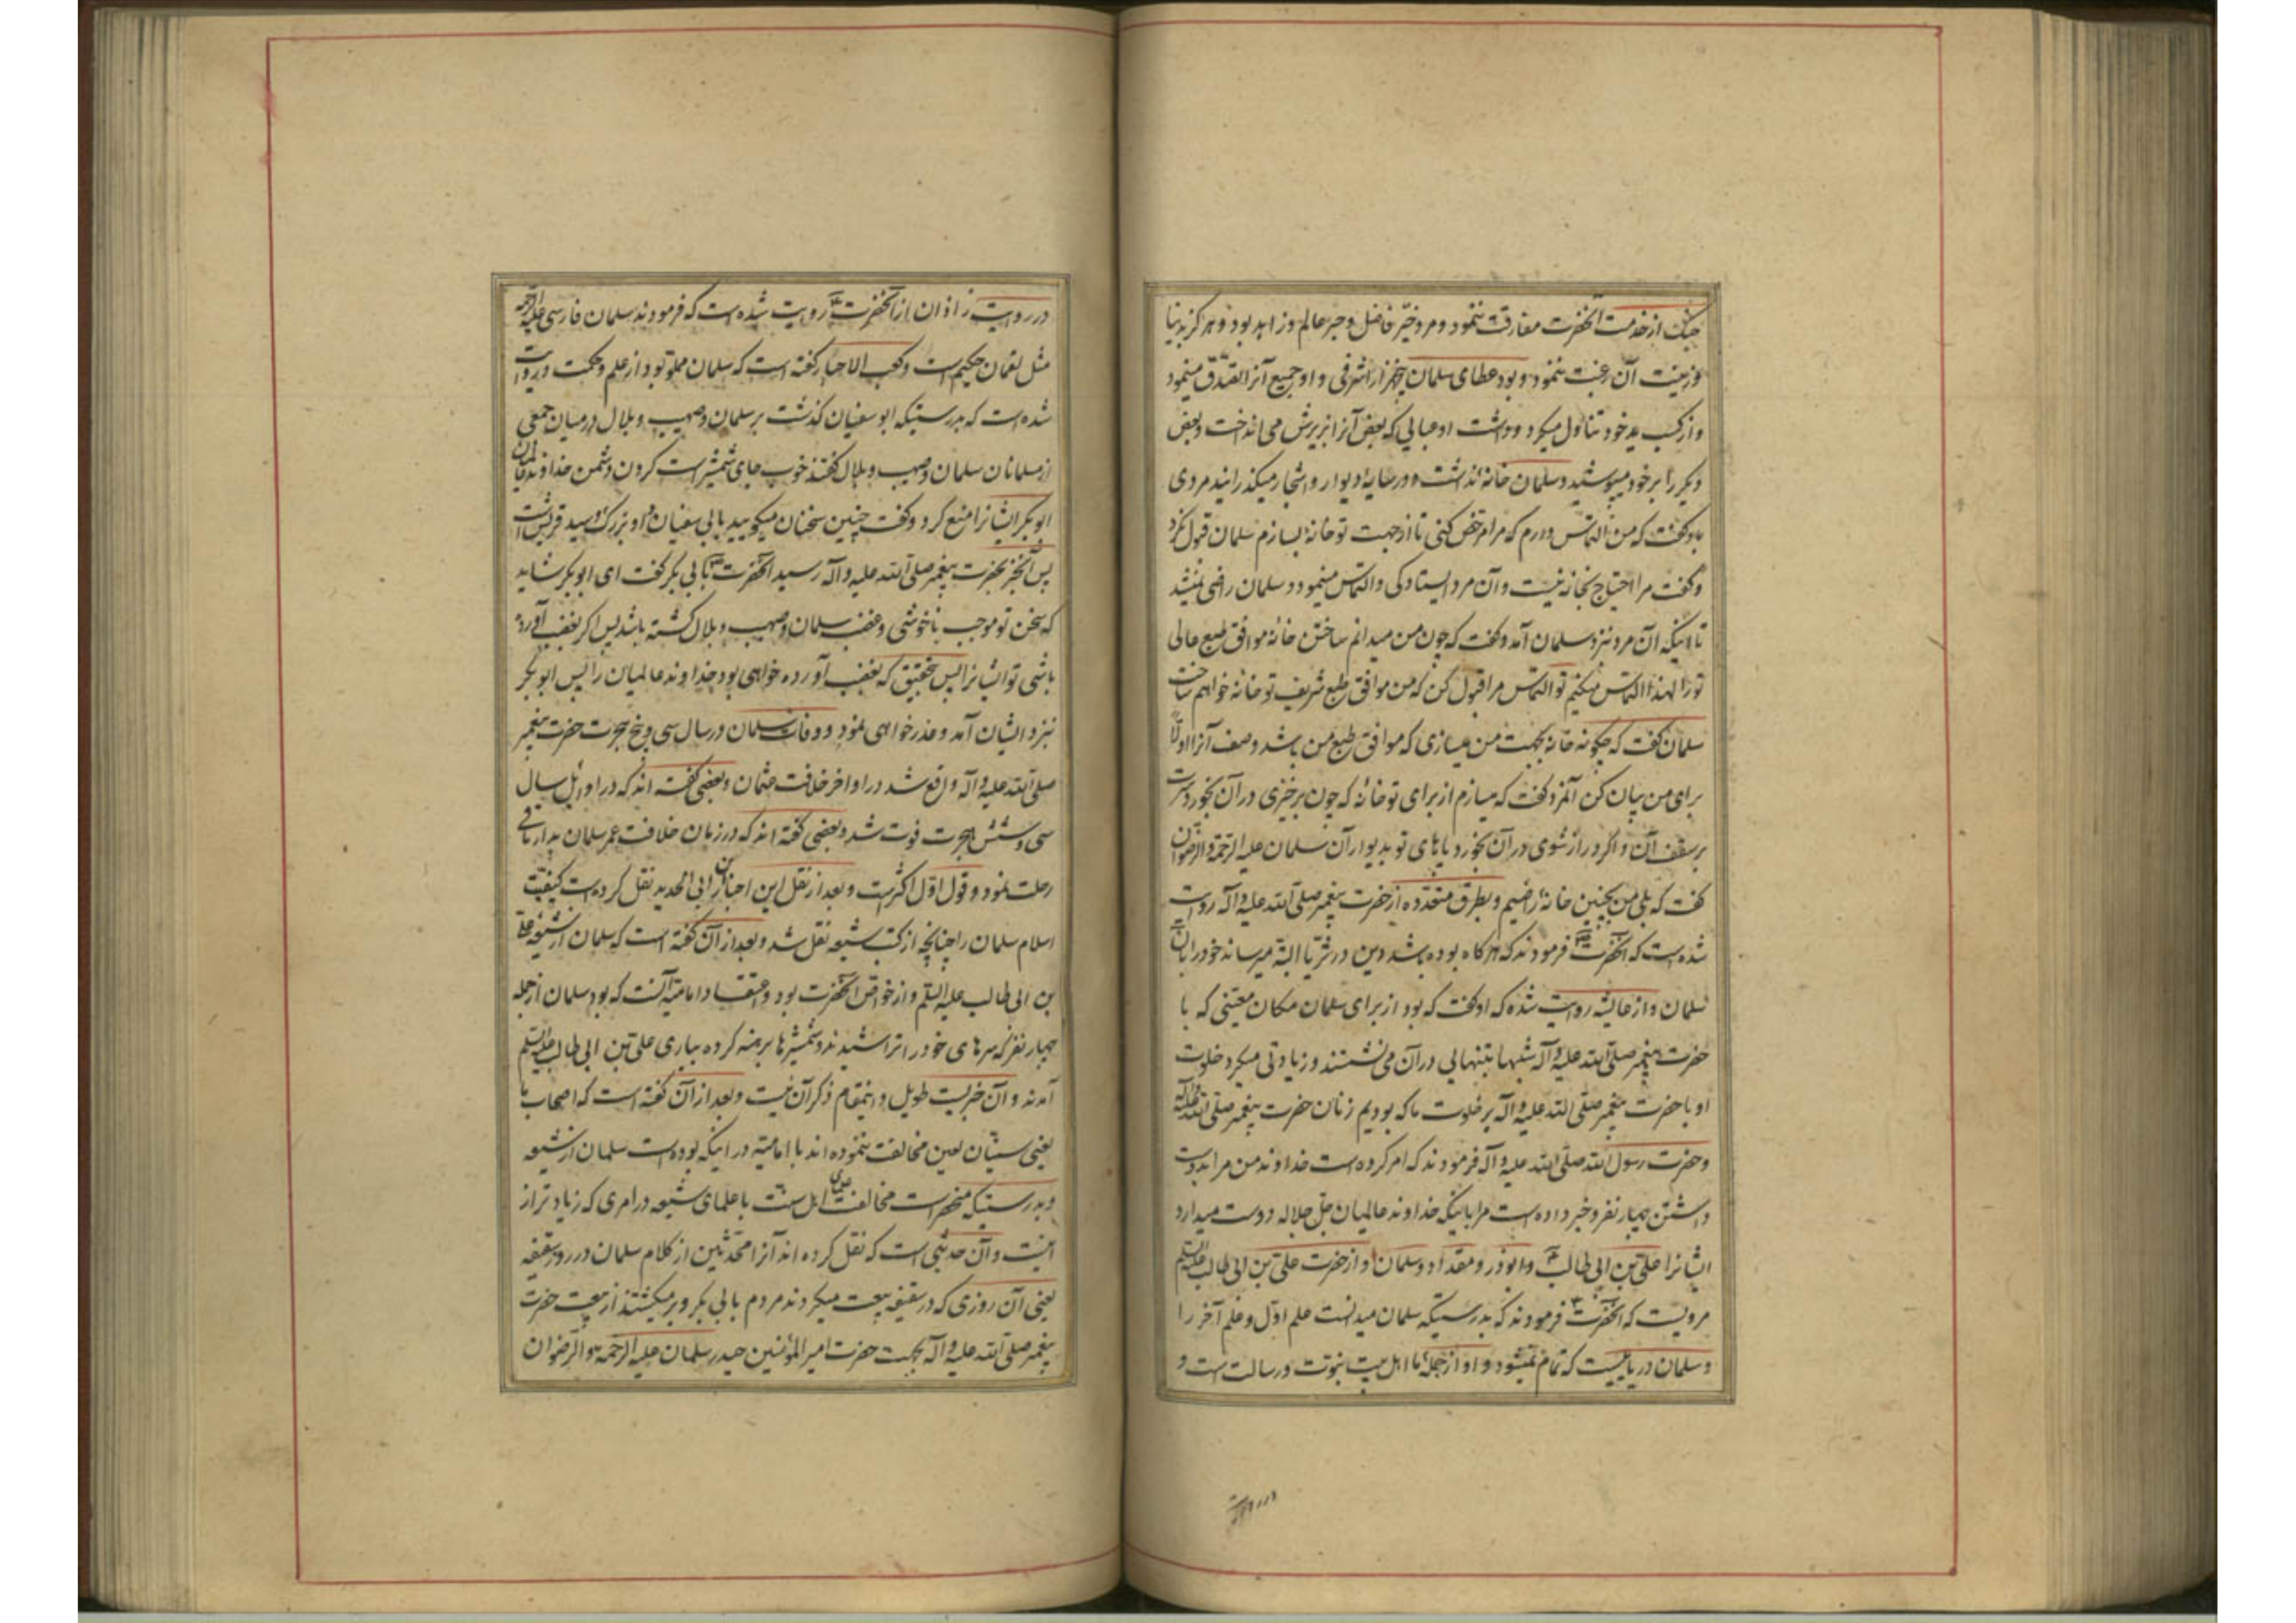 جنک از خدمت آنحضرت مفارقت ننمود و مرد خیّر فاضل و حبر عالم و زاهد بود و هرکز بدنیا
و زینت آن رغبت ننمود و بود عطای سلمان پنجهزار اشرفی و او جمیع آنرا تصدّق مینمود
و از کسب ید خود تناول میکرد و داشت او عبایی که بعض آنرا بزیرش می انداخت و بعض
دیکر را بر خود میپوشید و سلمان خانه نداشت و در سایهٔ دیوار و اشجار میکذرانید مردی
باو کفت که من التماس دارم که مرا مرخص کنی تا از جهت تو خانهٔ بسازم سلمان قبول نکرد
و کفت مرا احتیاج بخانه نیست و آن مرد ایستادکی و التماس مینمود و سلمان راضی نمیشد
تا اینکه آن مرد نزد سلمان آمد و کفت که چون من میدانم ساختن خانه موافق طبع عالی
تو را لهذا التماس میکنم تو التماس مرا قبول کن که من موافق طبع شریف تو خانه خواهم ساخت
سلمان کفت که چکونه خانه بجهت من میسازی که موافق طبع من باشد وصف آنرا اولاً
برای من بیان کن آنمرد کفت که میسازم از برای تو خانهٔ که چون برخیزی در آن بخورد سرت
بر سقف آن و اکر دراز شوی در آن بخورد پاهای تو بدیوار آن سلمان علیه الرحمة و الرضوان
کفت که بلی من بچنین خانهٔ راضیم و بطرق متعدّده از حضرت پیغمبر صلّی الله علیه و آله روایت
شده است که آنحضرت ص فرمودند که هرکاه بوده باشد دین در ثریّا البتّه میرساند خود را بآن
سلمان و از عایشه روایت شده که او کفت که بود از برای سلمان مکان معیّنی که با
حضرت پیغمبر صلّی الله علیه و آله شبها بتنهایی در آن می نشستند و زیادتی میکرد خلوت
او با حضرت پیغمبر صلّی الله علیه و آله بر خلوت ما که بودیم زنان حضرت پیغمبر صلّی الله علیه و آله
و حضرت رسول الله صلّی الله علیه و آله فرمودند که امر کرده است خداوند من مرا بدوست
داشتن چهار نفر و خبر داده است مرا باینکه خداوند عالمیان جلّ جلاله دوست میدارد
ایشانرا علیّ بن ابی طالب ع و ابوذر و مقداد و سلمان و از حضرت علیّ بن ابی طالب علیه السلم
مرویست که آنحضرت ع فرمودند که بدرستیکه سلمان میدانست علم اوّل و علم آخر را
و سلمان دریائیست که تمام نمیشود و او از جملهٔ ما اهل بیت نبوّت و رسالت است و
در روایت
در روایت زاذان از آنحضرت ع روایت شده است که فرمودند سلمان فارسی علیه الرحمه
مثل لقمان حکیم است و کعب الاحبار کفته است که سلمان مملو بود از علم و حکمت و روایت
شده است که بدرستیکه ابو سفیان کذشت بر سلمان و صهیب و بلال در میان جمعی
از مسلمانان سلمان و صهیب و بلال کفتند خوب جای شمشیر است کردن دشمن خداوند عالمیان
ابوبکر ایشانرا منع کرد و کفت چنین سخنان میکویید بابی سفیان و او بزرک و سید قریش است
پس آنخبر بحضرت پیغمبر صلّی الله علیه و آله رسید آنحضرت ص بابی بکر کفت ای ابوبکر شاید
که سخن تو موجب ناخوشی و غضب سلمان و صهیب و بلال کشته باشد پس اکر بغضب آورده
باشی تو ایشانرا پس بتحقیق که بغضب آورده خواهی بود خداوند عالمیان را پس ابو بکر
نزد ایشان آمد و عذر خواهی نمود و وفات سلمان در سال سی و پنج هجرت حضرت پیغمبر
صلّی الله علیه و آله واقع شد در اواخر خلافت عثمان و بعضی کفته اند که در اوایل سال
سی و شش هجرت فوت شد و بعضی کفته اند که در زمان خلافت عمر سلمان بدار باقی
رحلت نمود و قول اوّل اکثر است و بعد از نقل این اخبار ابن ابی الحدید نقل کرده است کیفیّت
اسلام سلمان را چنانچه از کتب شیعه نقل شد و بعد از آن کفته است که سلمان از شیعهٔ علیّ
بن ابی طالب علیه السلم و از خواصّ آنحضرت بود و اعتقاد امامیّه آنست که بود سلمان از جمله
چهار نفر که سرهای خود را تراشیدند و شمشیرها برهنه کرده بیاری علیّ بن ابی طالب علیه السلم
آمدند و آن خبریست طویل و اینمقام ذکر آن نیست و بعد از آن کفته است که اصحاب ما
یعنی سنّیان لعین مخالفت ننموده اند با امامیّه در اینکه بوده است سلمان از شیعه
و بدرستیکه منحصر است مخالفت علمای اهل سنّت با علمای شیعه در امری که زیادتر از
اینست و آن حدیثی است که نقل کرده اند آنرا محدّثین از کلام سلمان در روز سقیفه
یعنی آن روزی که در سقیفه بیعت میکردند مردم بابی بکر و برمیکشتند از بیعت حضرت
پیغمبر صلّی الله علیه و آله بجهت حضرت امیر المؤمنین حیدر سلمان علیه الرحمه و الرضوان